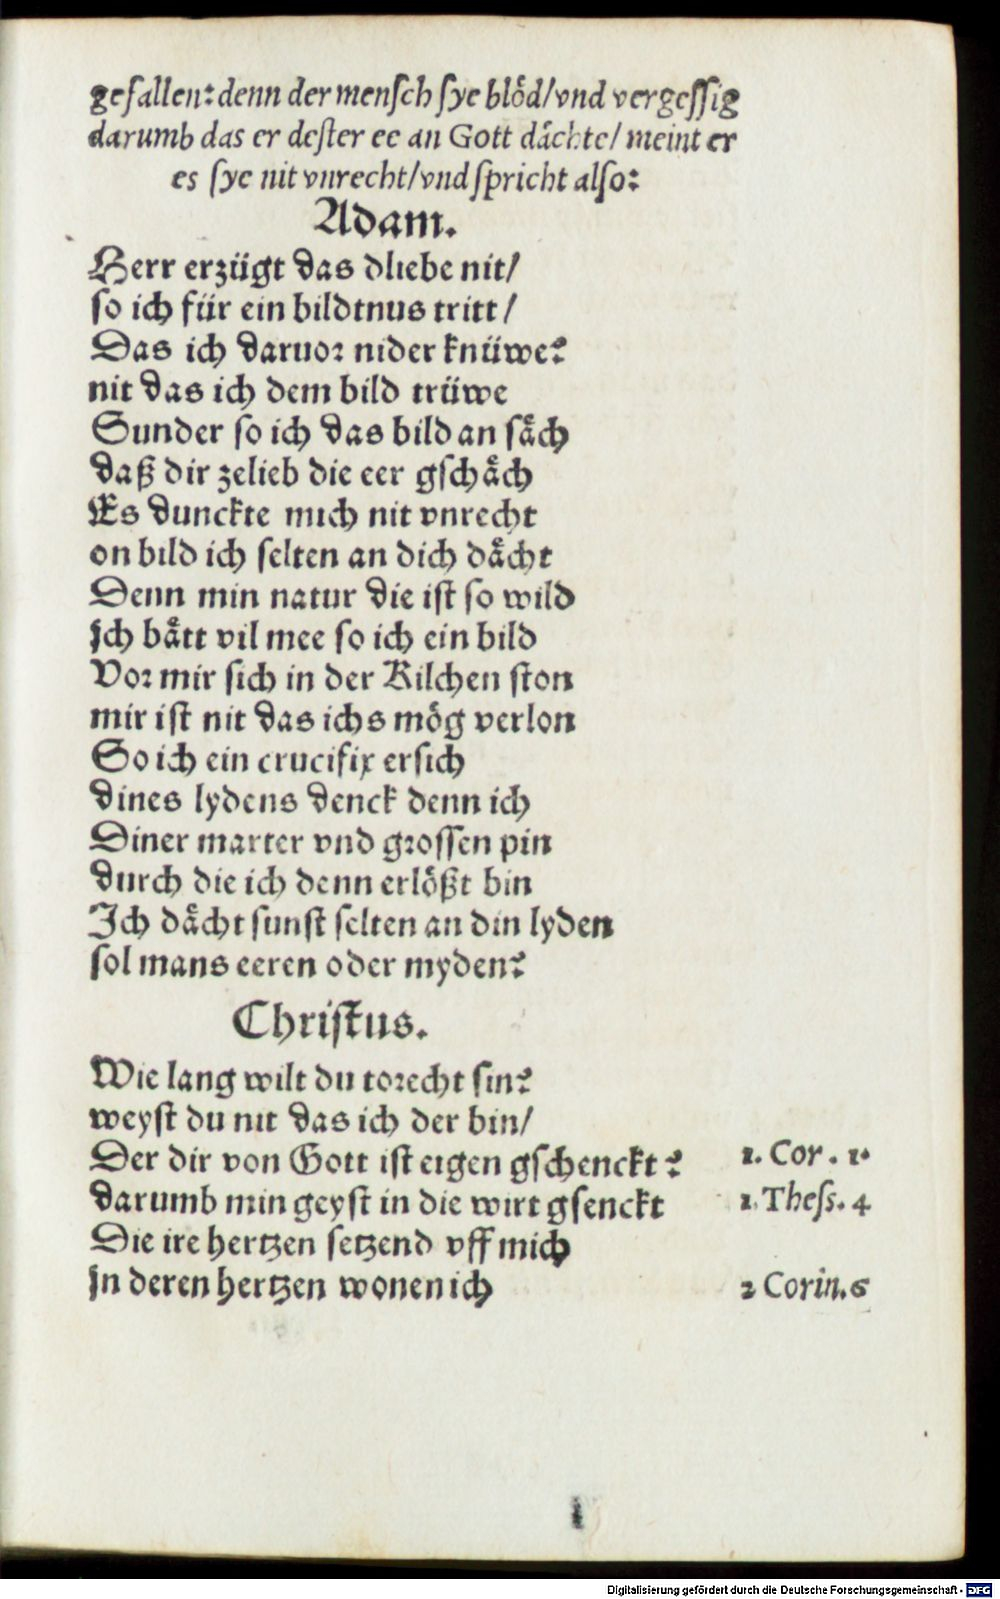 gefallen: denn der mensch sye blöd/vnd vergessig
darumb das er dester ee an Gott dächte/ meint er
es sye nit vnrecht/vnd spricht also:
Adam.
Herr erzügt das dliebe nit/
so ich für ein bildtnus tritt/
Das ich daruor nider knüwe?
nit das ich dem bild trüwe
Sunder so ich das bild an säch
daß dir zelieb die eer gschäch
Es dunckte mich nit vnrecht
on bild ich selten an dich dächt
Denn min natur die ist so wild
ich bätt vil mee so ich ein bild
Vor mir sich in der Kilchen ston
mir ist nit das ichs mög verlon
So ich ein crucifix ersich
dines lydens denck denn ich
Diner marter vnd grossen pin
durch die ich denn erlößt bin
Ich dächt sunst selten an din lyden
sol mans eeren oder myden?
Christus.
Wie lang wilt du torecht sin?
weyst du nit das ich der bin/
Der dir von Gott ist eigen gschenckt? 1. Cor. 1.
darumb min geyst in die wirt gsenckt 1. Thess. 4
Die ire hertzen setzend vff mich
in deren hertzen wonen ich 2 Corin. 6
Digitalisierung gefördert durch die Deutsche Forschungsgemeinschaft - DFG